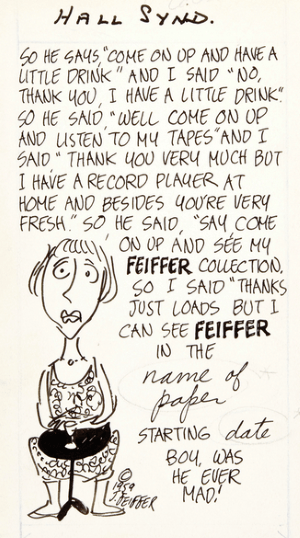 HALL SYND.
SO HE SAYS, "COME ON UP AND HAVE A
LITTLE DRINK" AND I SAID "NO,
THANK YOU, I HAVE A LITTLE DRINK".
SO HE SAID, "WELL COME ON UP
AND LISTEN TO MY TAPES" AND I
SAID "THANK YOU VERY MUCH BUT
I HAVE A RECORD PLAYER AT
HOME AND BESIDES YOU'RE VERY
FRESH." SO HE SAID, "SAY, COME
ON UP AND SEE MY
FEIFFER COLLECTION,
SO I SAID "THANKS
JUST LOADS BUT I
CAN SEE FEIFFER
IN THE
name of
paper
STARTING date
BOY, WAS
HE EVER
MAD!
©
1959
J. FEIFFER